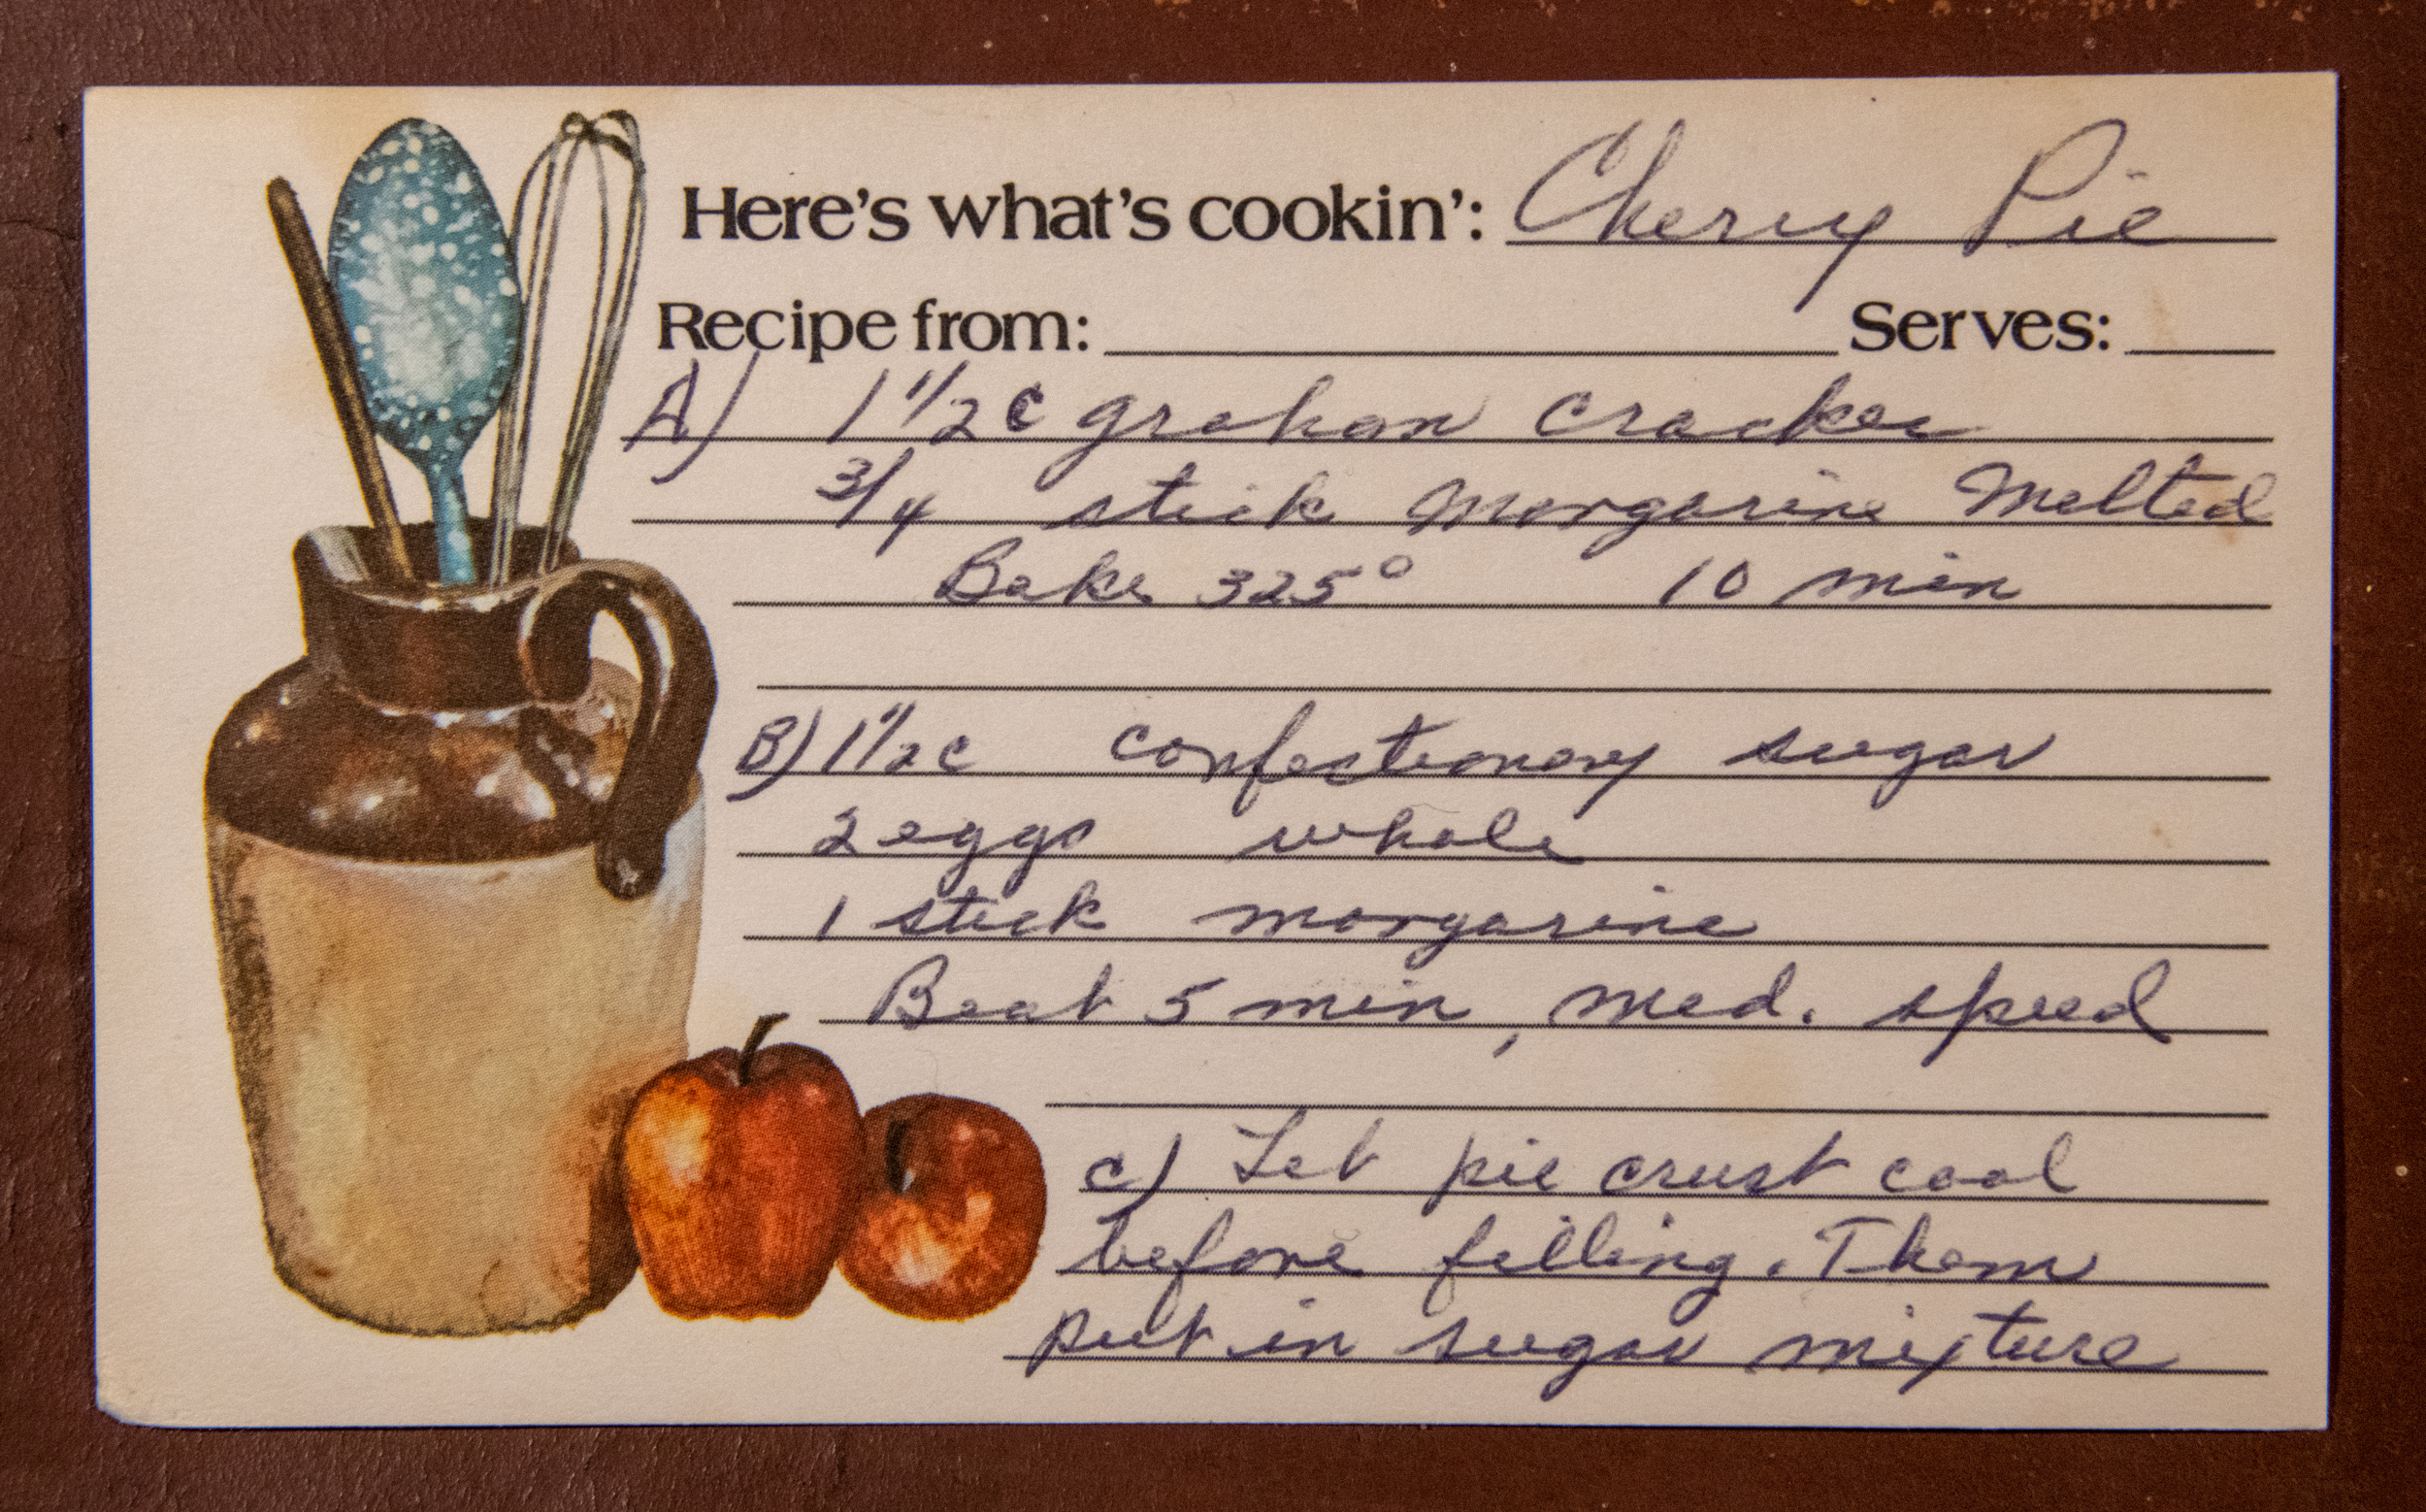 Here's what's cookin': Cherry Pie
Recipe from: Serves:
A) 1 1/2 c graham cracker
3/4 stick margarine melted
Bake 325° 10 min
B) 1 1/2 c confectionary sugar
2 eggs whole
1 stick margarine
Beat 5 min, med. speed
c) Let pie crust cool
before filling. Then
put in sugar mixture